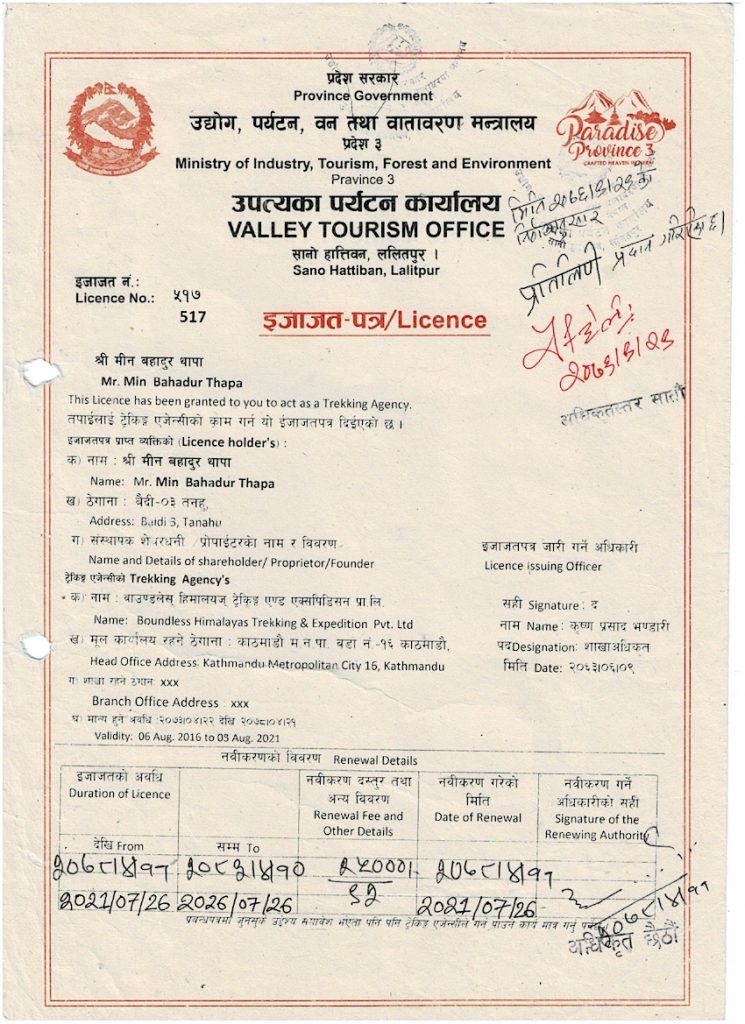 प्रदेश सरकार
Province Government
उद्योग, पर्यटन, वन तथा वातावरण मन्त्रालय
प्रदेश ३
Ministry of Industry, Tourism, Forest and Environment
Pravince 3
Paradise
Province 3
CRAFTED HEAVEN
उपत्यका पर्यटन कार्यालय
VALLEY TOURISM OFFICE
सानो हात्तिवन, ललितपुर ।
Sano Hattiban, Lalitpur
प्रतिलिपी प्रदान गरिएको छ।
इजाजत नं.:
Licence No.: ५१७
517
इजाजत-पत्र/Licence
अधिकृतस्तर सातौं
श्री मीन बहादुर थापा
Mr. Min Bahadur Thapa
This Licence has been granted to you to act as a Trekking Agency.
तपाईलाई ट्रेकिङ्ग एजेन्सीको काम गर्न यो ईजाजतपत्र दिईएको छ ।
इजाजतपत्र प्राप्त व्यक्तिको (Licence holder's) :
क) नाम : श्री मीन बहादुर थापा
Name: Mr. Min Bahadur Thapa
ख) ठेगाना : बैदी-०३ तनहु,
Address: Baidi 3, Tanahu
ग) संस्थापक शेयरधनी /प्रोपाईटरका नाम र विवरण
Name and Details of shareholder/ Proprietor/Founder
इजाजतपत्र जारी गर्ने अधिकारी
Licence issuing Officer
ट्रेकिङ्ग एजेन्सीको Trekking Agency's
क) नाम : बाउण्डलेस हिमालयज् ट्रेकिङ्ग एण्ड एक्सपिडिसन प्रा.लि.
Name: Boundless Himalayas Trekking & Expedition Pvt. Ltd
ख) मूल कार्यालय रहने ठेगाना : काठमाडौ म.न.पा. वडा नं.-१६ काठमाडौ,
Head Office Address: Kathmandu Metropolitan City 16, Kathmandu
सही Signature: द
नाम Name: कृष्ण प्रसाद भण्डारी
पदDesignation: शाखाअधिकृत
मिति Date: २०६३।०६।०९
ग) शाखा रहने ठेगाना xxx
Branch Office Address : xxx
घ) मान्य हुने अवधि :२०७३।०४।२२ देखि २०७८।०४।२१
Validity: 06 Aug. 2016 to 03 Aug. 2021
नवीकरणको विवरण Renewal Details
इजाजतको अवधि
Duration of Licence
देखि From
सम्म To
नवीकरण दस्तुर तथा
अन्य विवरण
Renewal Fee and
Other Details
नवीकरण गरेको
मिति
Date of Renewal
नवीकरण गर्ने
अधिकारीको सही
Signature of the
Renewing Authority
२०७८।४।११ २०८३।४।१० २०७८।४।११
2021/07/26 2026/07/26 2021/07/26
२०७८।४।११
अधिकृत छैठौं